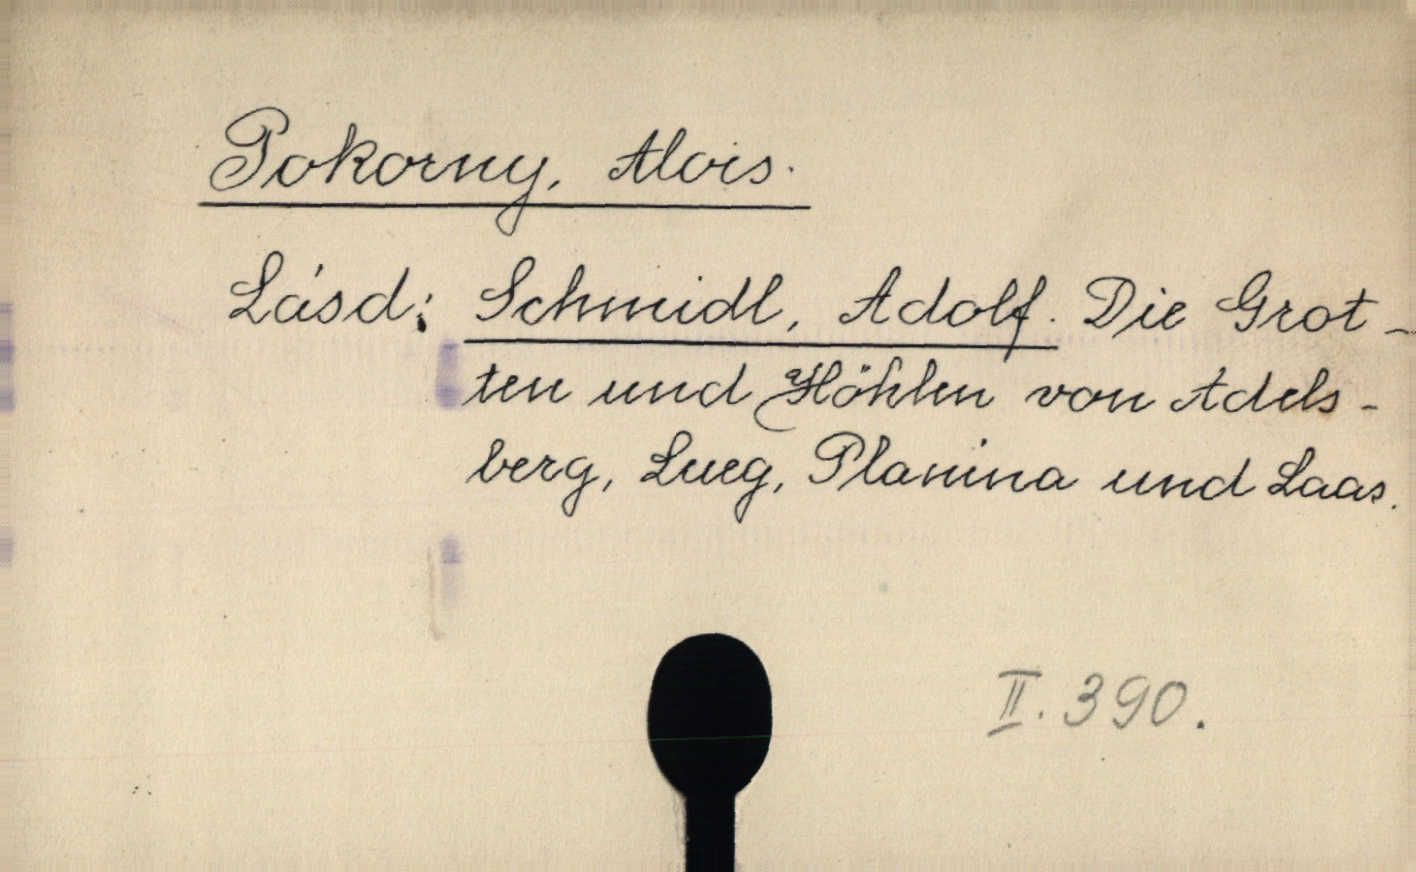 Pokorny, Alois.
Lásd: Schmidl, Adolf. Die Grot-
ten und Höhlen von Adels-
berg, Lueg, Planina und Laas.
II. 390.